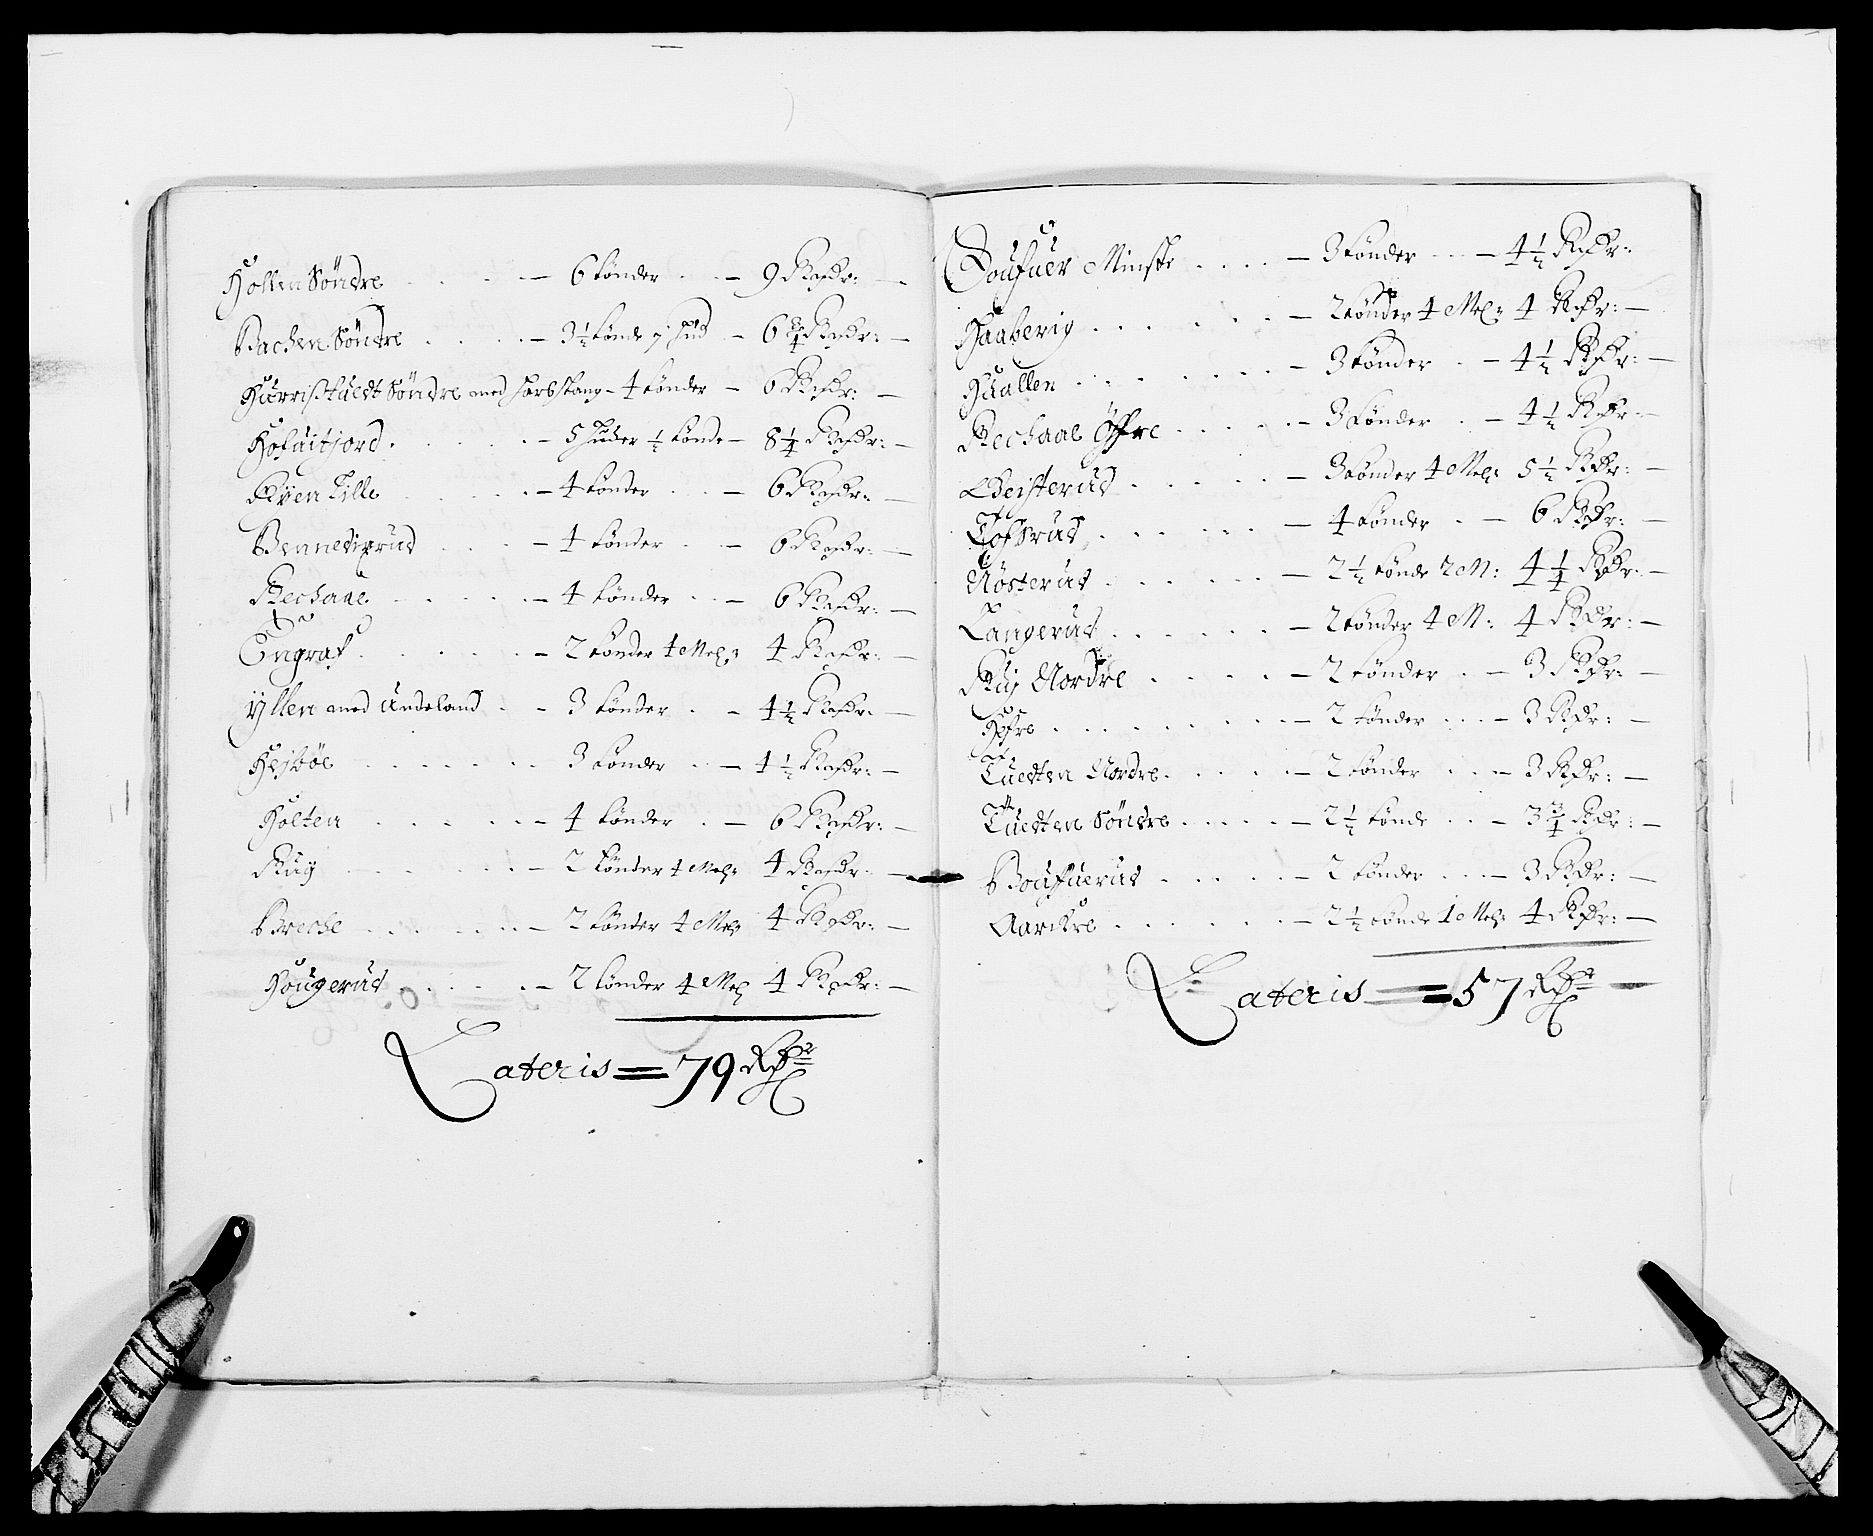 Hollen Söndre - 6 tönder - 9 Rixdr: -
Bachen Söndre - 3½ tönde 1 Hud - 6¾ Rixdr: -
Hurristuedt Söndre med Harestang - 4 tönder - 6 Rixdr: -
Holuitfjord - 5 Huder ½ tönde - 8¼ Rixdr: -
Ryen Lille - 4 tönder - 6 Rixdr: -
Bennedixrud - 4 tönder - 6 Rixdr: -
Rechaae - 4 tönder - 6 Rixdr: -
Engraf - 2 tönder 4 Mel: 4 Rixdr: -
Ÿllen med Andeland - 3 tönder - 4½ Rixdr: -
Hesböe - 3 tönder - 4½ Rixdr: -
Holten - 4 tönder - 6 Rixdr: -
Ruy - 2 tönder 4 Mel: 4 Rixdr: -
Breche - 2 tönder 4 Mel: 4 Rixdr: -
Hougerud - 2 tönder 4 Mel: 4 Rixdr: -
Lateris = 79 Rdr
Doufuer Minste - 3 tönder - 4½ Rdr: -
Haaberig - 2 tönder 4 Mel: 4 Rdr: -
Huallen - 3 tönder - 4½ Rdr: -
Rechaae Öfre - 3 tönder - 4½ Rdr: -
Geisterud - 3 tönder 4 Mel: 5½ Rdr: -
Tofsrud - 4 tönder - 6 Rdr: -
Nösterud - 2½ tönde 2 M: 4¼ Rdr: -
Langerud - 2 tönder 4 M: 4 Rdr: -
Ruj Nordre - 2 tönder - 3 Rdr: -
- 2 tönder - 3 Rdr: -
Tuedten Nordre - 2 tönder - 3 Rdr: -
Tuedten Söndre - 2½ tönde - 3¾ Rdr: -
Boufuerud - 2 tönder - 3 Rdr: -
Aarekre - 2½ tönde 1 Mel: 4 Rdr: -
Lateris = 57 Rdr -